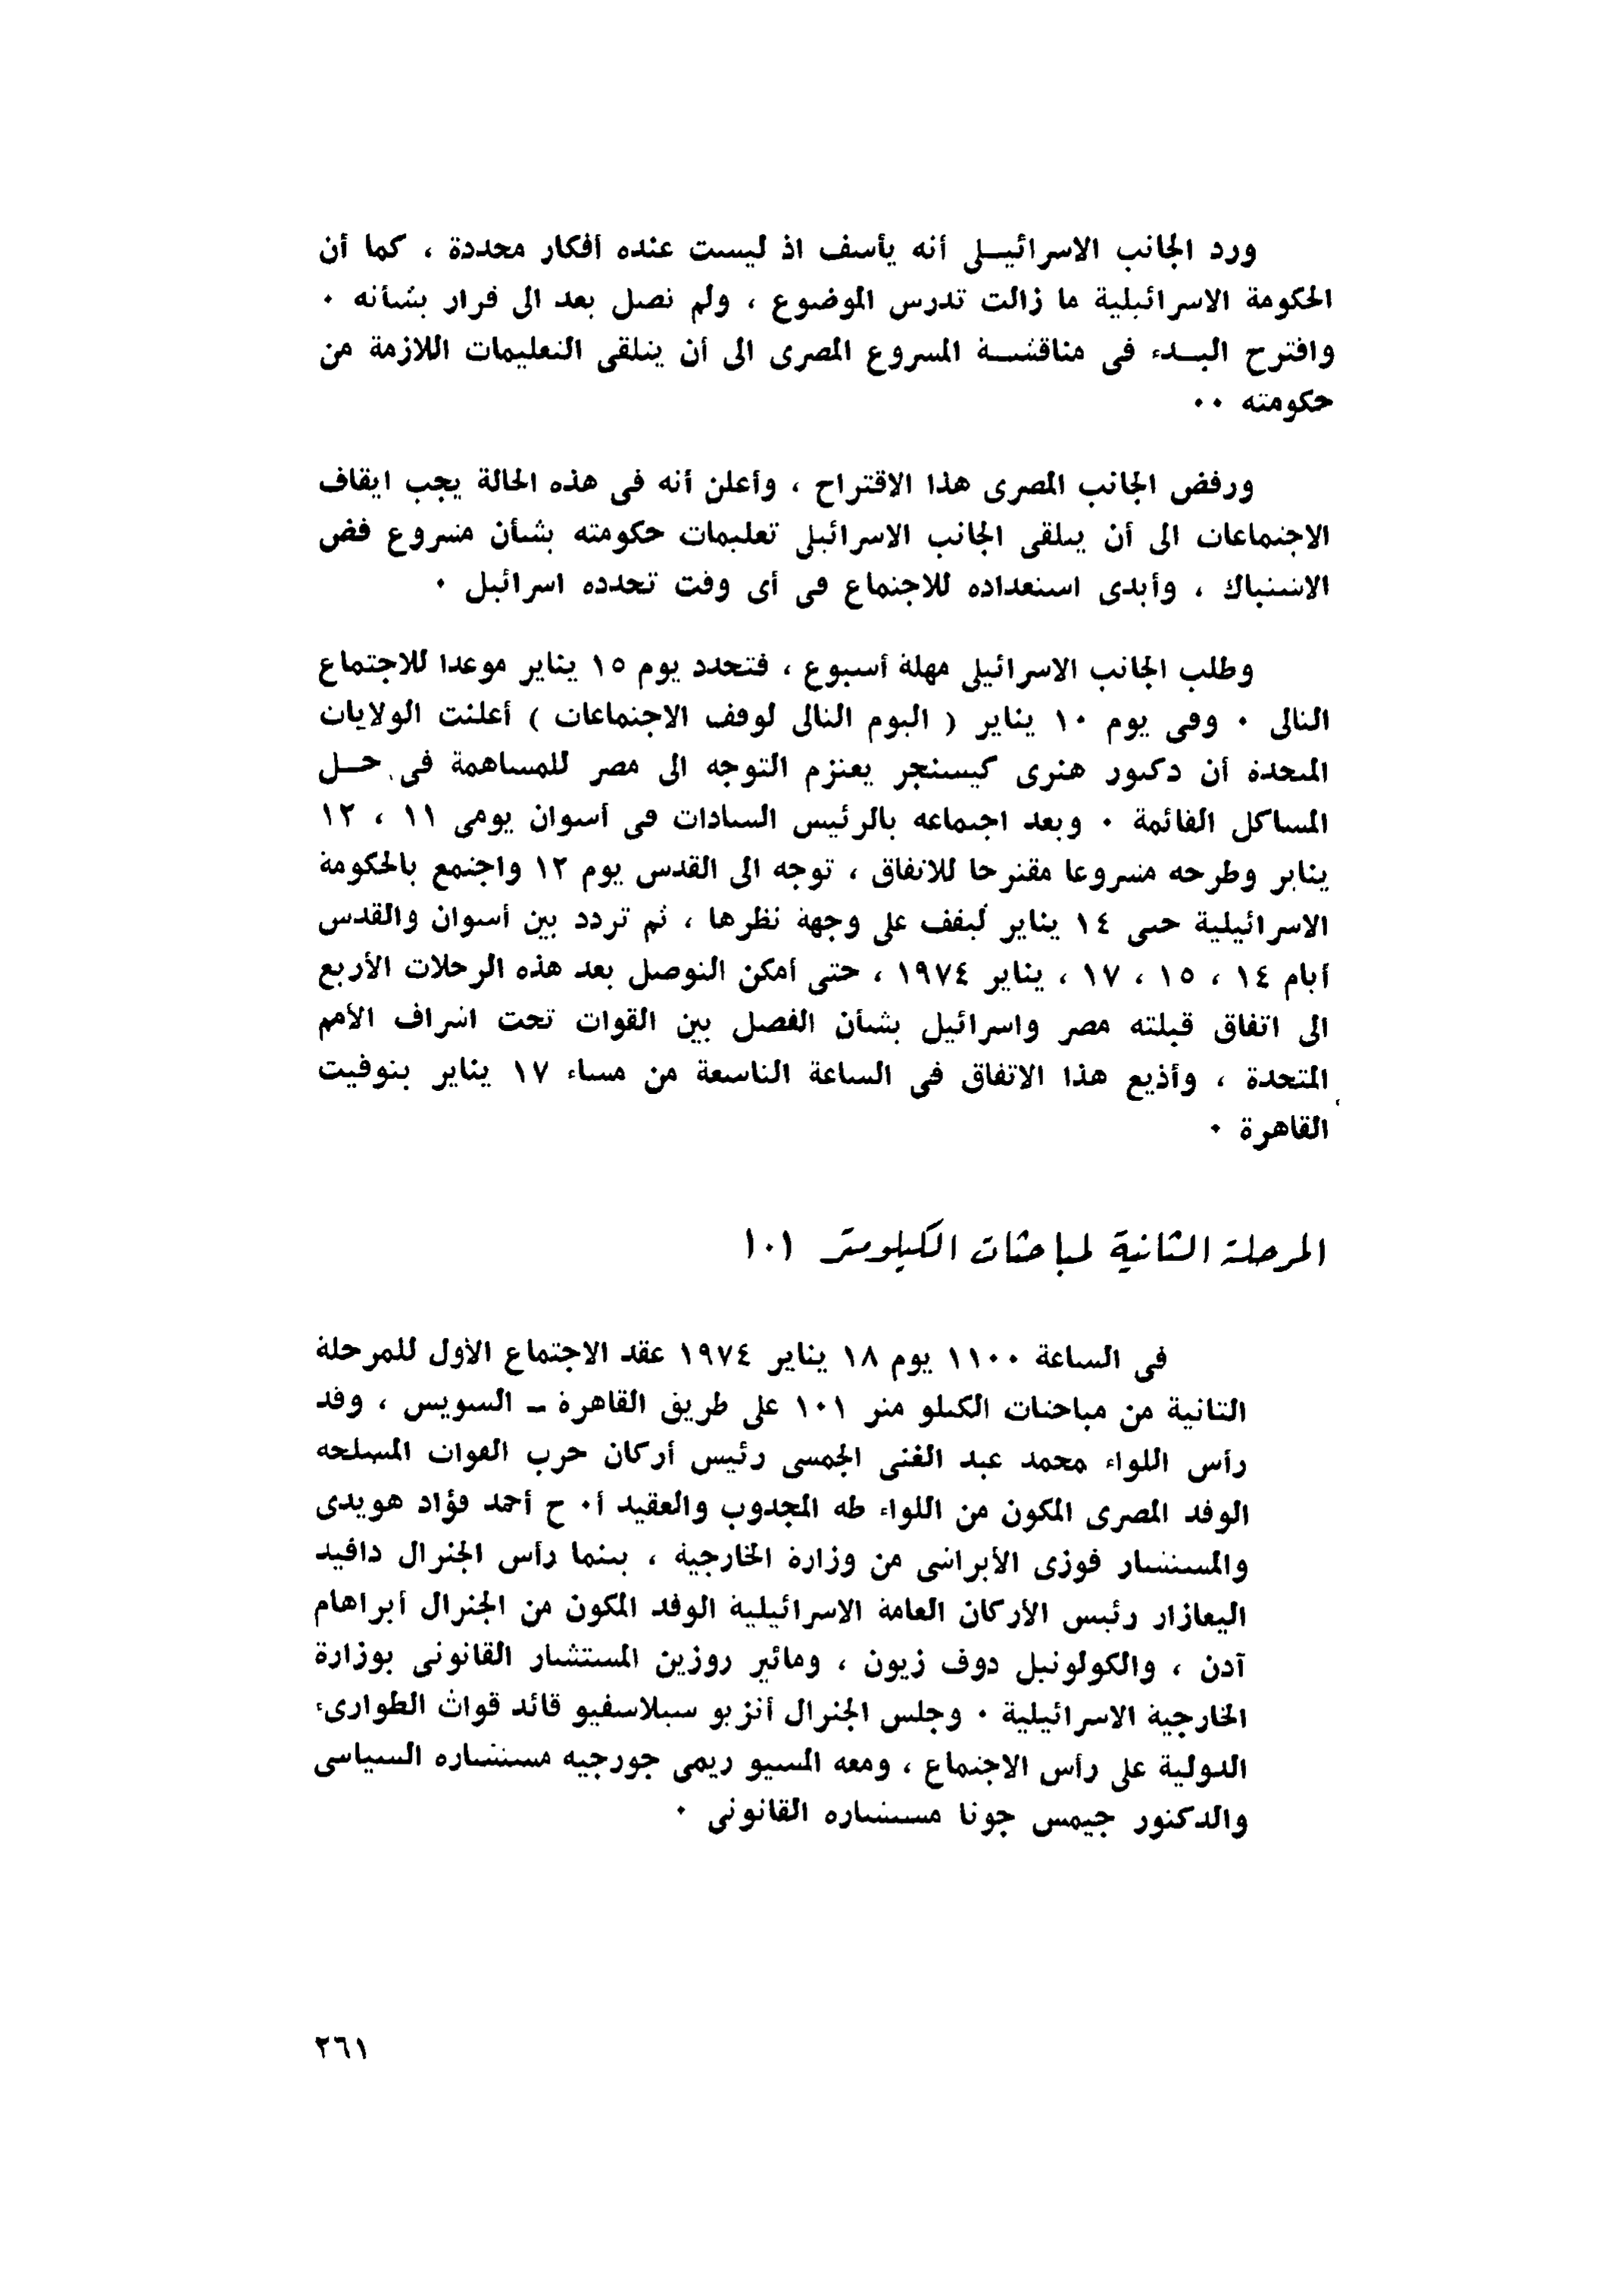 ورد الجانب الاسرائيلى أنه يأسف اذ ليست عنده أفكار محددة ، كما أن
الحكومة الاسرائيلية ما زالت تدرس الموضوع ، ولم تصل بعد الى قرار بشأنه ٠
واقترح البدء فى مناقشة المشروع المصرى الى أن يتلقى التعليمات اللازمة من
حكومته ٠٠
ورفض الجانب المصرى هذا الاقتراح ، وأعلن أنه فى هذه الحالة يجب ايقاف
الاجتماعات الى أن يتلقى الجانب الاسرائيلى تعليمات حكومته بشأن مشروع فض
الاشتباك ، وأبدى استعداده للاجتماع فى أى وقت تحدده اسرائيل ٠
وطلب الجانب الاسرائيلى مهلة أسبوع ، فتحدد يوم ١٥ يناير موعدا للاجتماع
التالى ٠ وفى يوم ١٠ يناير ( اليوم التالى لوقف الاجتماعات ) أعلنت الولايات
المتحدة أن دكتور هنرى كيسنجر يعتزم التوجه الى مصر للمساهمة فى حل
المشاكل القائمة ٠ وبعد اجتماعه بالرئيس السادات فى أسوان يومى ١١ ، ١٢
يناير وطرحه مشروعا مقترحا للاتفاق ، توجه الى القدس يوم ١٢ واجتمع بالحكومة
الاسرائيلية حتى ١٤ يناير ليقف على وجهة نظرها ، ثم تردد بين أسوان والقدس
أيام ١٤ ، ١٥ ، ١٧ ، يناير ١٩٧٤ ، حتى أمكن التوصل بعد هذه الرحلات الأربع
الى اتفاق قبلته مصر واسرائيل بشأن الفصل بين القوات تحت اشراف الأمم
المتحدة ، وأذيع هذا الاتفاق فى الساعة التاسعة من مساء ١٧ يناير بتوقيت
القاهرة ٠
المرحلة الثانية لمباحثات الكيلومتر ١٠١
فى الساعة ١١٠٠ يوم ١٨ يناير ١٩٧٤ عقد الاجتماع الأول للمرحلة
الثانية من مباحثات الكيلو متر ١٠١ على طريق القاهرة – السويس ، وقد
رأس اللواء محمد عبد الغنى الجمسى رئيس أركان حرب القوات المسلحة
الوفد المصرى المكون من اللواء طه المجدوب والعقيد أ٠ ح أحمد فؤاد هويدى
والمستشار فوزى الأبراشى من وزارة الخارجية ، بينما رأس الجنرال دافيد
اليعازار رئيس الأركان العامة الاسرائيلية الوفد المكون من الجنرال أبراهام
آدن ، والكولونيل دوف زيون ، ومائير روزين المستشار القانونى بوزارة
الخارجية الاسرائيلية ٠ وجلس الجنرال أنزيو سيلاسفيو قائد قوات الطوارىء
الدولية على رأس الاجتماع ، ومعه المسيو ريمى جورجيه مستشاره السياسى
والدكتور جيمس جونا مستشاره القانونى ٠
٢٦١